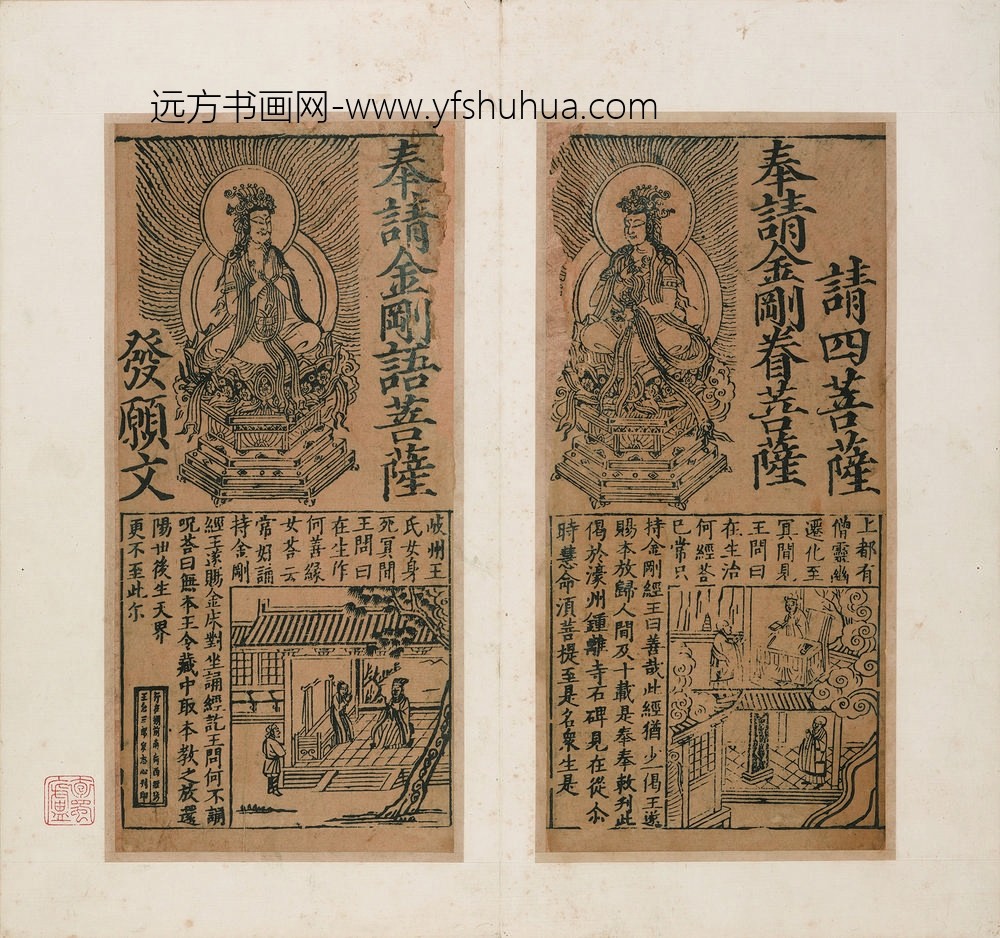 远方书画网-www.yfshuhua.com
請四菩薩
奉請金剛眷菩薩
上都有
僧靈幽
遷化至
冥間見
王問曰
在生治
何經荅
已常只
持金剛經王曰善哉此經猶少一偈王遂
賜本放歸人間及十載是奉奉敕刋此
偈於濠州鍾離寺石碑見在從尒
時慧命湏菩提至是名衆生是
奉請金剛語菩薩
發願文
岐州王
氏女身
死冥間
王問曰
在生作
何善縁
女荅云
常好誦
持金剛
經王遂賜金床對坐誦經訖王問何不誦
呪荅曰無本王令藏中取本教之放還
陽丗後生天界
更不至此尒